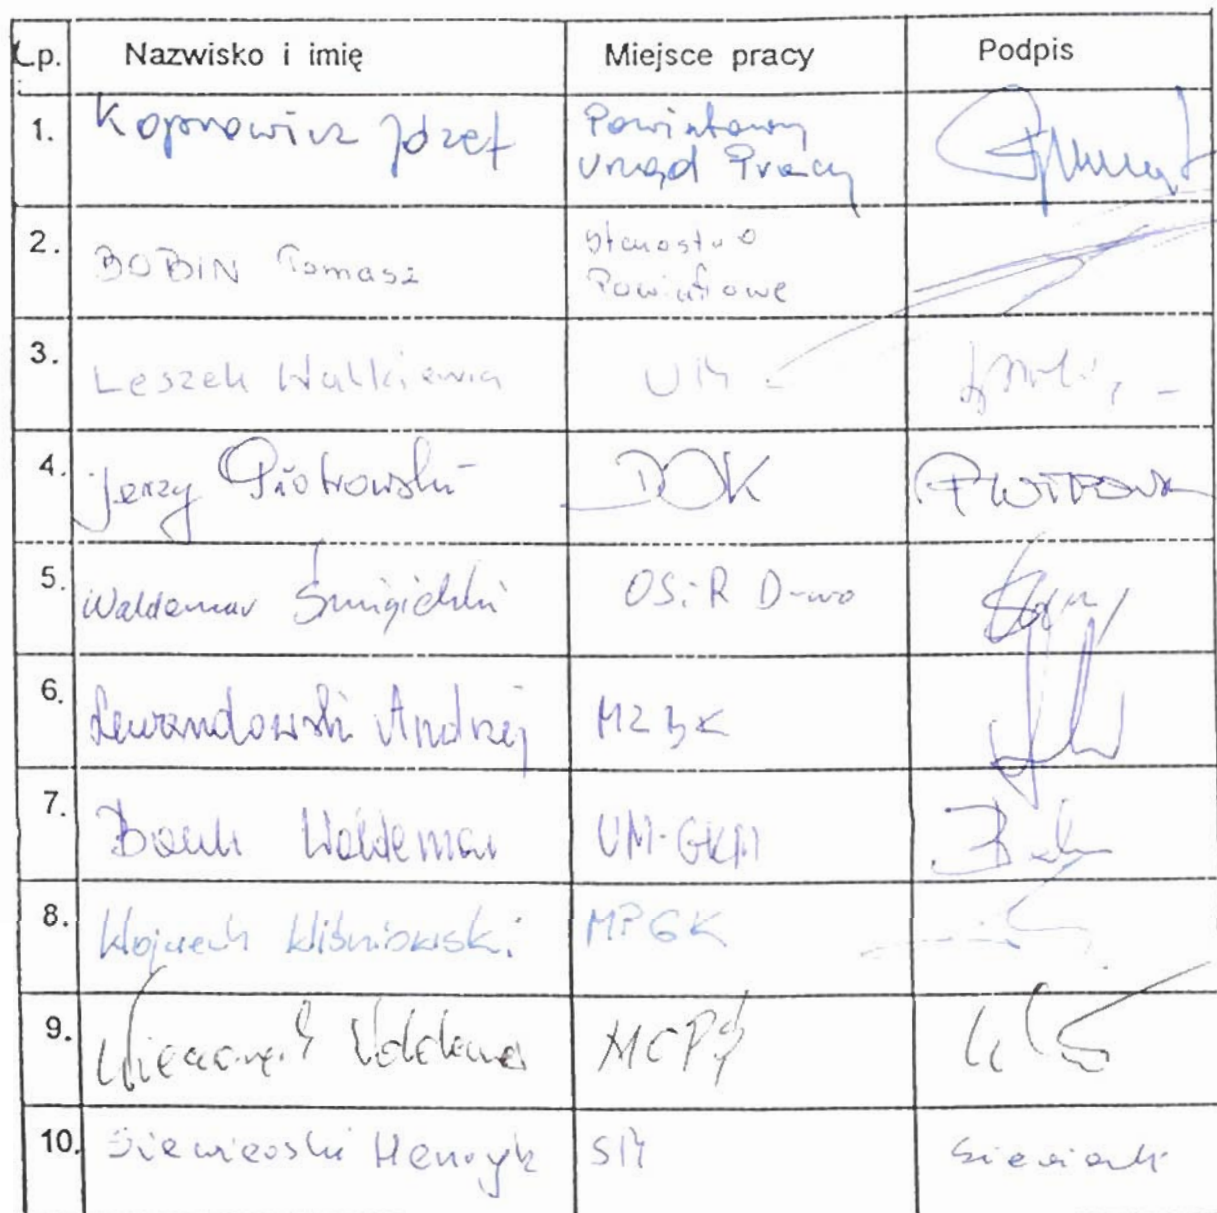 Lp. Nazwisko i imię Miejsce pracy Podpis
1. Koprowicz Józef Powiatowy
Urząd Pracy
2. BOBIN Tomasz Starostwo
Powiatowe
3. Leszek Walkiewicz UM
4. Jerzy Piotrowski DOK
5. Waldemar Śmigielski OSiR D-wo
6. Lewandowski Andrzej MZBK
7. Waldemar UM-GKM
8. Wojciech Wiśniowski MPGK
9. Waldemar
10. Siewierski Henryk SM